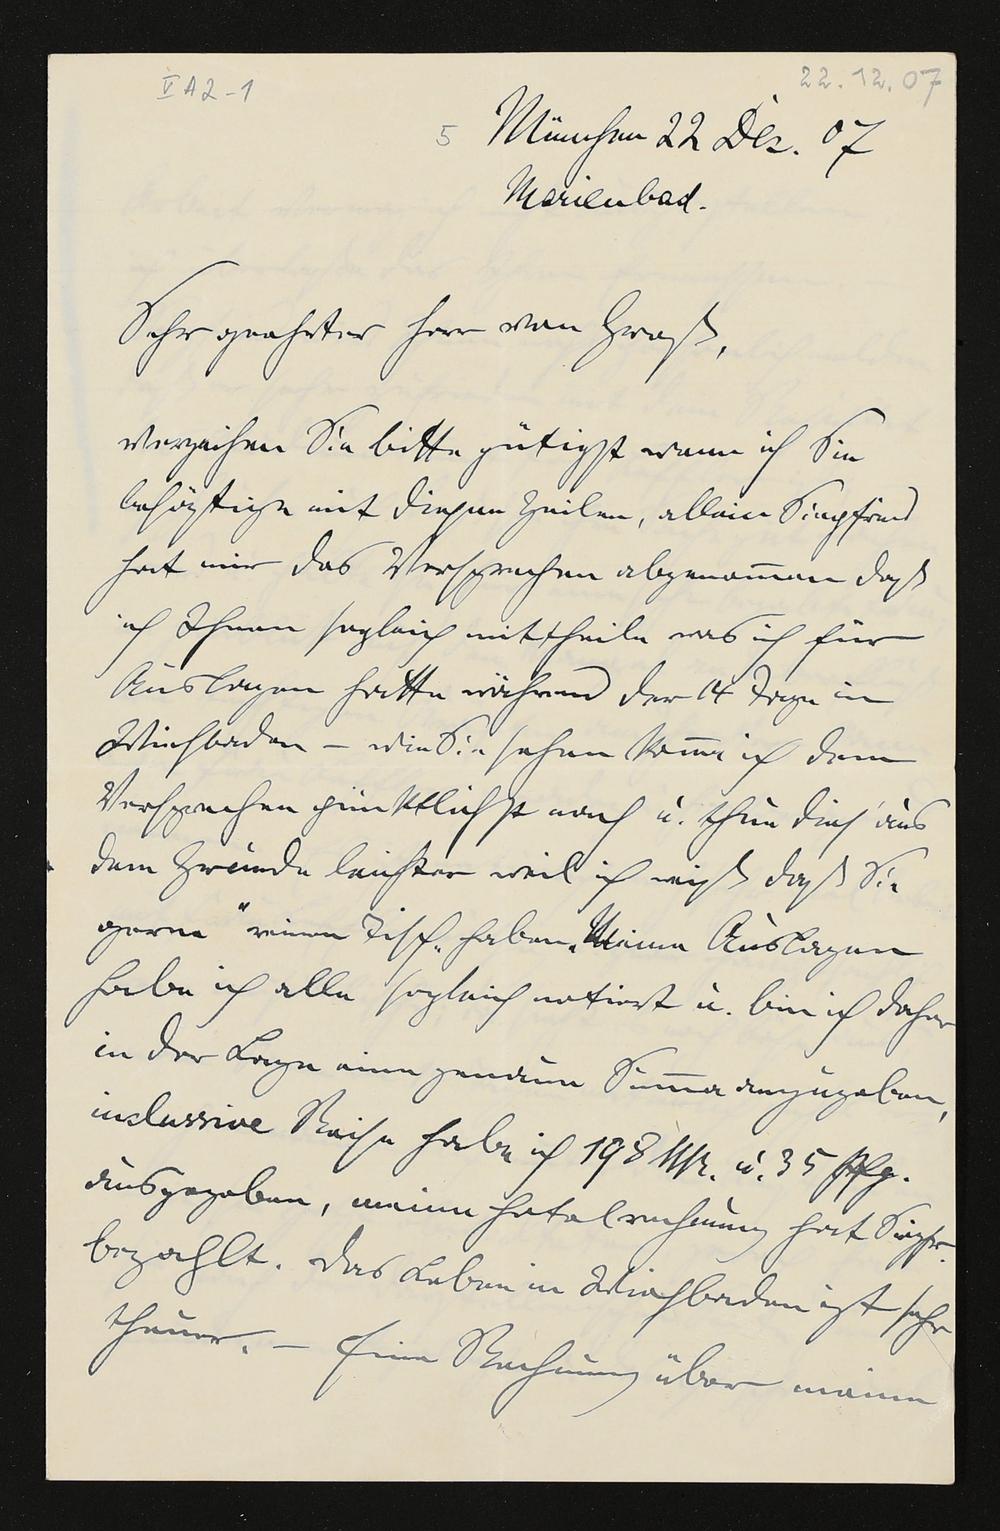 V A 2 - 1
22.12.07
5 München 22 Dez. 07
Marienbad.
Sehr geehrter Herr von Groß,
verzeihen Sie bitte gütigst wenn ich Sie
belästige mit diesen Zeilen, allein Siegfried
hat mir das Versprechen abgenom̅en daß
ich Ihnen sogleich mittheile was ich für
Auslagen hatte während der 14 Tage in
Wiesbaden – wie Sie sehen kom̅e ich dem
Versprechen pünktlichst nach u. thue dies aus
dem Grunde leichter weil ich weiß daß Sie
gerne "reinen Tisch" haben. Meine Auslagen
habe ich alle sogleich notiert u. bin ich daher
in der Lage eine genaue Sum̅e anzugeben,
inclussive Reise habe ich 198 Mk. u. 35 Pfg.
ausgegeben, meine Hotelrechnung hat Siegfr.
bezahlt. Das Leben in Wiesbaden ist sehr
theuer. – Eine Rechnung über meine